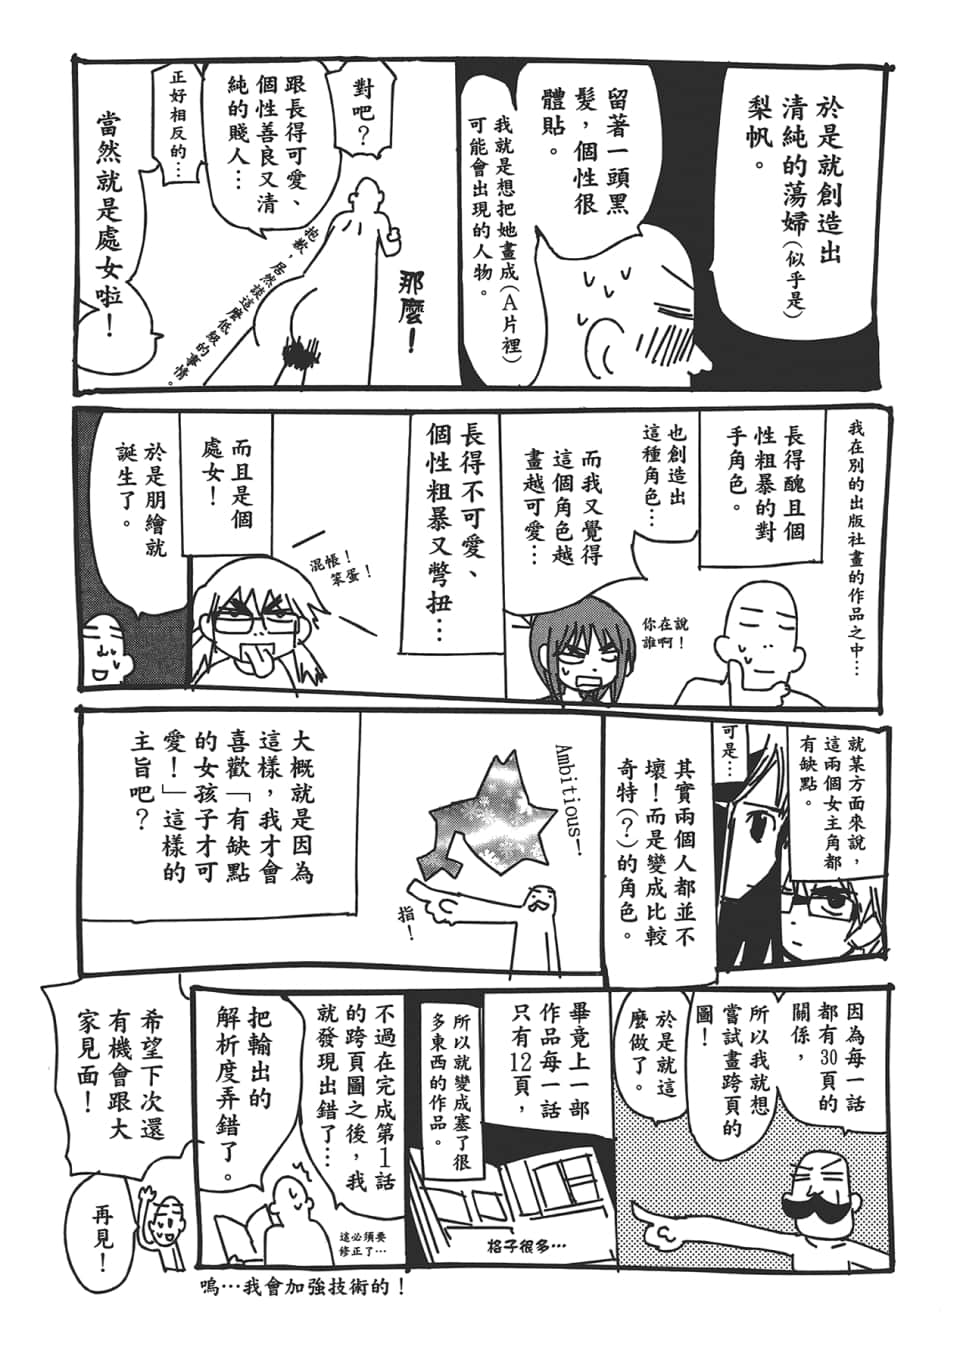 於是就創造出
清純的蕩婦（似乎是）
梨帆。
留著一頭黑
髮，個性很
體貼。
我就是想把她畫成（A片裡）
可能會出現的人物。
那麼！
對吧？
跟長得可愛、
個性善良又清
純的賤人…
正好相反的…
抱歉，居然談這麼低級的事情。
當然就是處女啦！
我在別的出版社畫的作品之中…
長得醜且個
性粗暴的對
手角色。
也創造出
這種角色…
而我又覺得
這個角色越
畫越可愛…
你在說
誰啊！
長得不可愛、
個性粗暴又彆扭…
混帳！
笨蛋！
而且是個
處女！
於是朋繪就
誕生了。
就某方面來說，
這兩個女主角都
有缺點。
可是…
其實兩個人都並不
壞！而是變成比較
奇特（？）的角色。
Ambitious!!
指！
大概就是因為
這樣，我才會
喜歡「有缺點
的女孩子才可
愛！」這樣的
主旨吧？
因為每一話
都有30頁的
關係，
所以我就想
嘗試畫跨頁的
圖！
於是就這
麼做了。
畢竟上一部
作品每一話
只有12頁，
所以就變成塞了很
多東西的作品。
格子很多…
不過在完成第1話
的跨頁圖之後，我
就發現出錯了…
把輸出的
解析度弄錯了。
這必須要
修正了…
嗚…我會加強技術的！
希望下次還
有機會跟大
家見面！
再見！